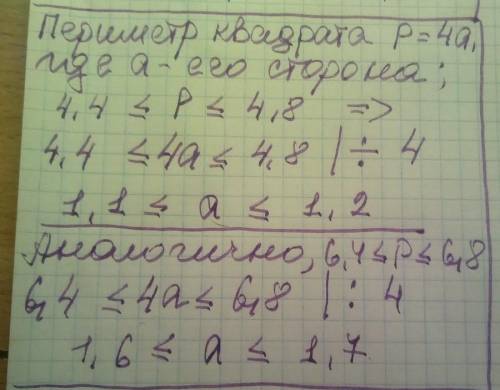 Периметр квадрата P=4a,
где a - его сторона;
4,4 ≤ P ≤ 4,8 =>
4,4 ≤ 4a ≤ 4,8 | ÷ 4
1,1 ≤ a ≤ 1,2
Аналогично, 6,4 ≤ P ≤ 6,8
6,4 ≤ 4a ≤ 6,8 | : 4
1,6 ≤ a ≤ 1,7